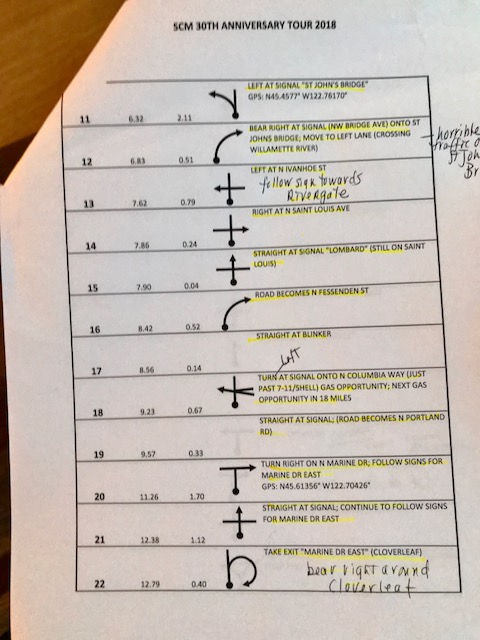 SCM 30TH ANNIVERSARY TOUR 2018
11 6.32 2.11 LEFT AT SIGNAL "ST JOHN'S BRIDGE"
GPS: N45.4577° W122.76170°
12 6.83 0.51 BEAR RIGHT AT SIGNAL (NW BRIDGE AVE) ONTO ST
JOHNS BRIDGE; MOVE TO LEFT LANE (CROSSING
WILLAMETTE RIVER)
horrible
traffic
St John
Br
13 7.62 0.79 LEFT AT N IVANHOE ST
follow sign towards
Rivergate
14 7.86 0.24 RIGHT AT N SAINT LOUIS AVE
15 7.90 0.04 STRAIGHT AT SIGNAL "LOMBARD" (STILL ON SAINT
LOUIS)
16 8.42 0.52 ROAD BECOMES N FESSENDEN ST
17 8.56 0.14 STRAIGHT AT BLINKER
Left
18 9.23 0.67 TURN AT SIGNAL ONTO N COLUMBIA WAY (JUST
PAST 7-11/SHELL) GAS OPPORTUNITY; NEXT GAS
OPPORTUNITY IN 18 MILES
19 9.57 0.33 STRAIGHT AT SIGNAL; (ROAD BECOMES N PORTLAND
RD)
20 11.26 1.70 TURN RIGHT ON N MARINE DR; FOLLOW SIGNS FOR
MARINE DR EAST
GPS: N45.61356° W122.70426°
21 12.38 1.12 STRAIGHT AT SIGNAL; CONTINUE TO FOLLOW SIGNS
FOR MARINE DR EAST
22 12.79 0.40 TAKE EXIT "MARINE DR EAST" (CLOVERLEAF)
bear right around
Cloverleaf